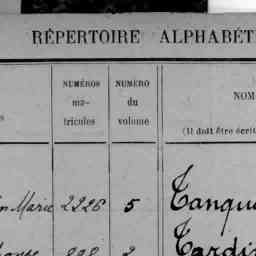 RÉPERTOIRE ALPHABÉT
NUMÉROS
ma-
tricules
NUMÉRO
du
volume
NOM
(Il doit être écrit
Marie 2226 5 Tanqu
2 Tardi